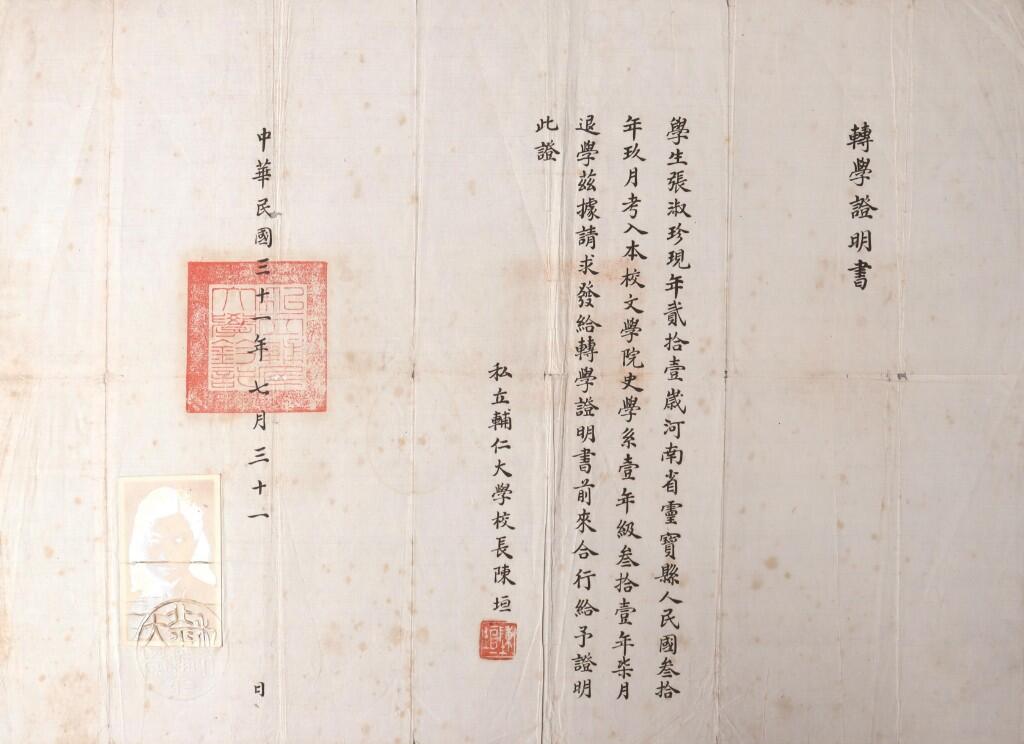 轉學證明書
學生張淑珍現年貳拾壹歲河南省靈寶縣人民國叁拾
年玖月考入本校文學院史學系壹年級叁拾壹年柒月
退學茲據請求發給轉學證明書前來合行給予證明
此證
私立輔仁大學校長陳垣
陳垣
中華民國三十一年七月三十一日